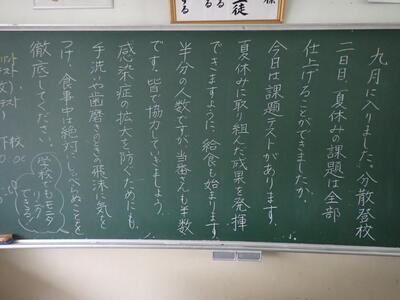 九月に入りました。分散登校
二日目。夏休みの課題は全部
仕上げることができましたか。
今日は課題テストがあります。
夏休みに取り組んだ成果を発揮
できますように。給食も始まります。
半分の人数ですが、当番さんも半数
です。皆で協力していきましょう。
感染症の拡大を防ぐためにも、
手洗いや歯磨きのときの飛沫に気を
つけ、食事中は絶対にしゃべらぬことを
徹底してください。
学校でもモニタ
リング
できる。
下校